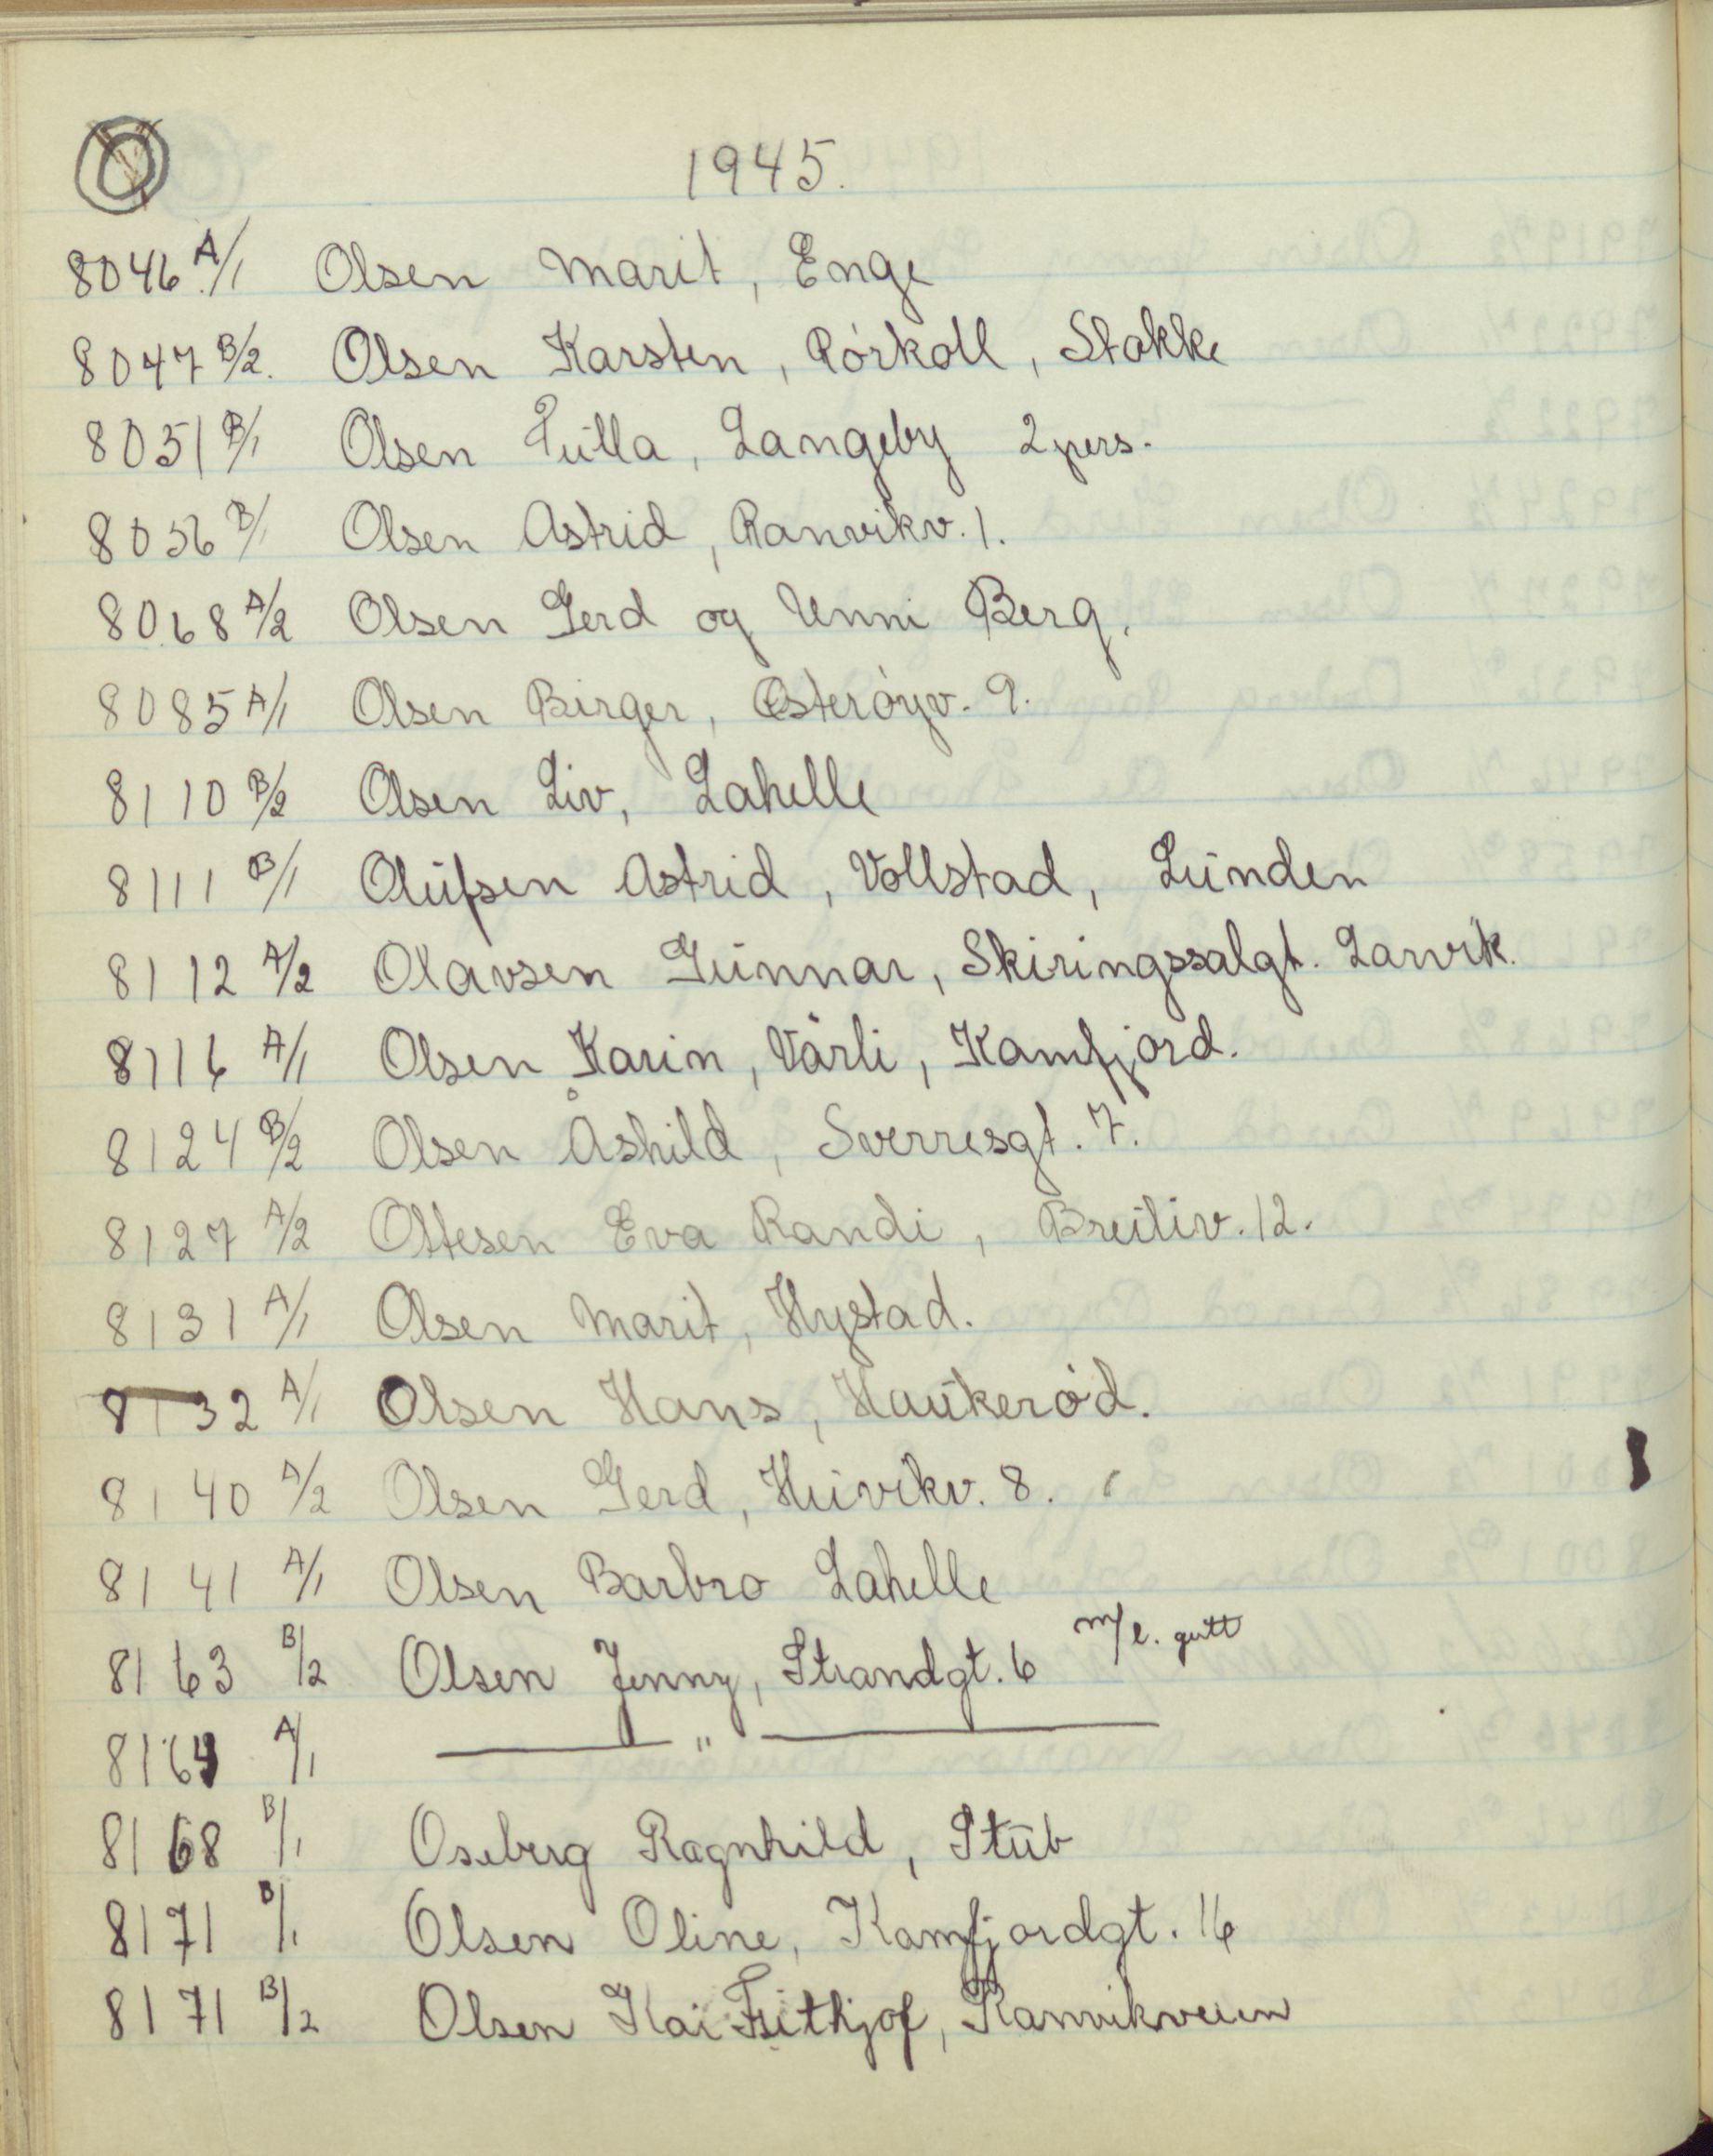 O
1945.
8046 A/1 Olsen Marit, Enge
8047 B/2. Olsen Karsten, Rórkoll, Stokke
8051 B/1 Olsen Tulla, Langeby 2 pers.
8056 B/1 Olsen Astrid, Ranvikv. 1.
8068 A/2 Olsen Gerd og Unni Berg.
8085 A/1 Olsen Birger, Østerøyv. 9.
8110 B/2 Olsen Liv, Lahelle
8111 B/1 Olufsen Astrid, Vollstad, Lunden
8112 A/2 Olavsen Gunnar, Skiringssalgt. Larvik.
8116 A/1 Olsen Karin, Vårli, Kamfjord.
8124 B/2 Olsen Åshild, Sverresgt. 7.
8127 A/2 Ottesen Eva Randi, Breiliv. 12.
8131 A/1 Olsen Marit, Hystad.
8132 A/1 Olsen Hans, Haukerød.
8140 A/2 Olsen Gerd, Huvikv. 8.
8141 A/1 Olsen Barbro Lahelle
8163 B/2 Olsen Jenny, Strandgt. 6 m/l. gutt
8164 A/1 — " —
8168 B/1 Oseberg Ragnhild, Stub
8171 B/1 Olsen Oline, Kamfjordgt. 16
8171 B/2 Olsen Kai Frithjof, Ranvikveien